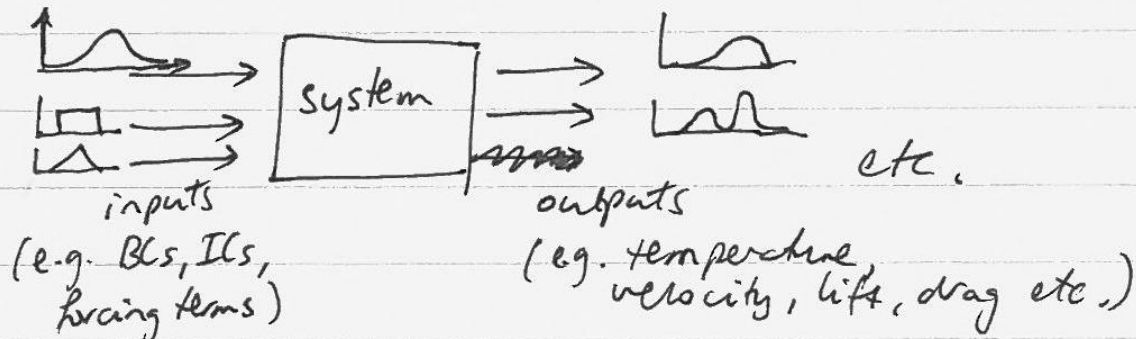 system
etc.
inputs
outputs
(e.g. BCs, ICs,
forcing terms)
(eg. temperature,
velocity, lift, drag etc.)